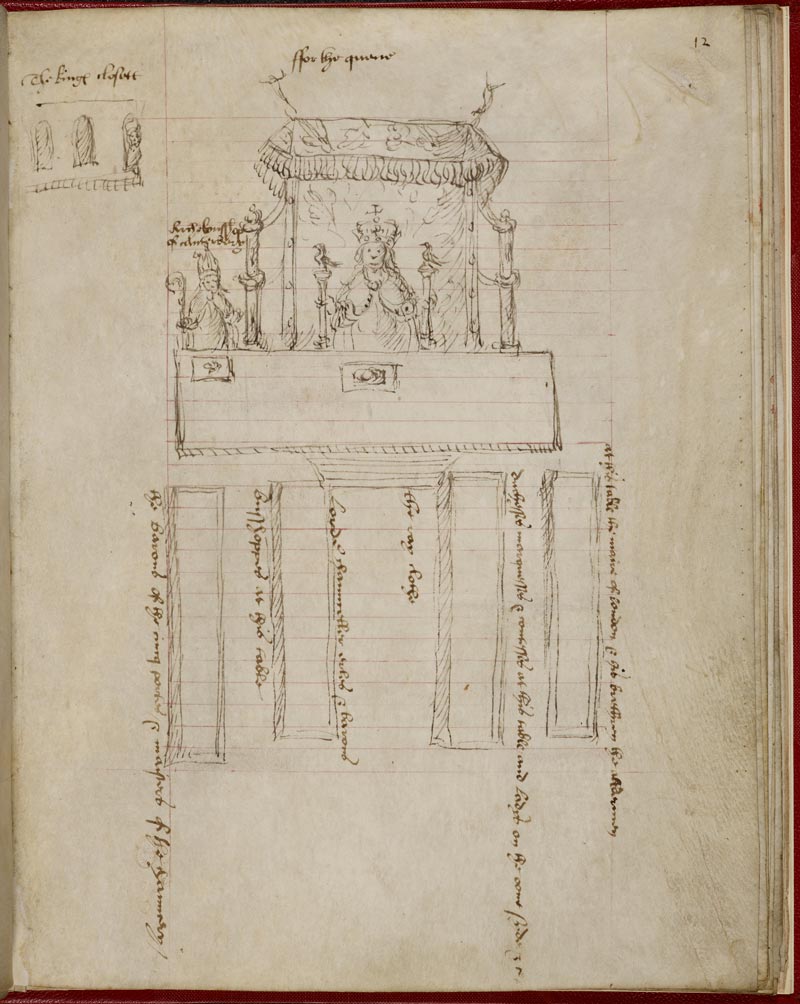 12
ffor the quene
The kinges closett
Archbusshop
of canterbery
the barons of the cinq portes & maisters of the chauncery
Busshoppes at this table
Lorde chaunceller erles & barons
the ray clothe
duchesses marquesses & contesses at this table and ladys on the oone syde
at this table the maire of london & his brethern the aldermen